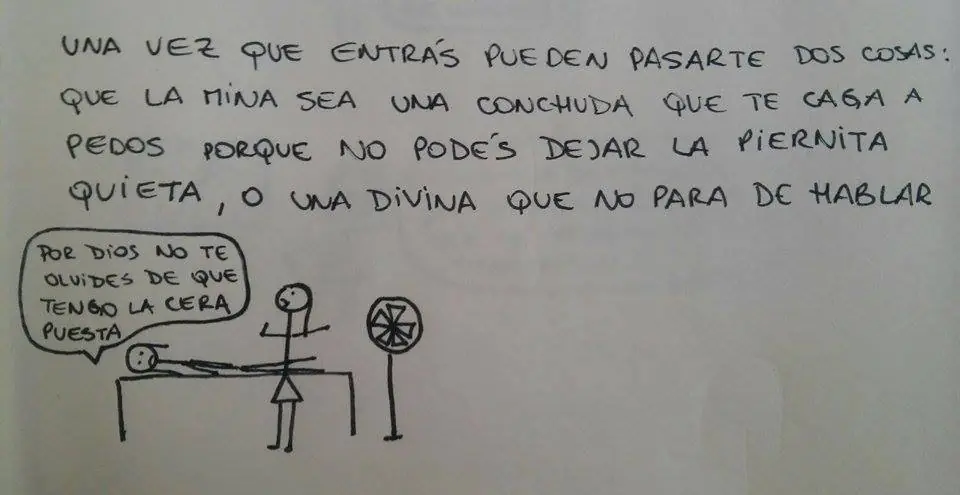 UNA VEZ QUE ENTRÁS PUEDEN PASARTE DOS COSAS:
QUE LA MINA SEA UNA CONCHUDA QUE TE CAGA A
PEDOS PORQUE NO PODÉS DEJAR LA PIERNITA
QUIETA, O UNA DIVINA QUE NO PARA DE HABLAR
POR DIOS NO TE
OLVIDES DE QUE
TENGO LA CERA
PUESTA